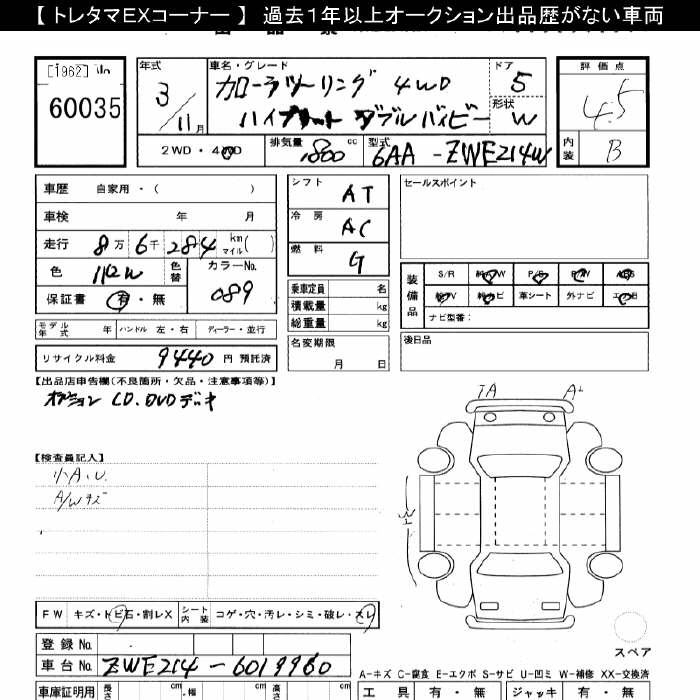 【 トレタマEXコーナー 】 過去1年以上オークション出品歴がない車両
[1962]
60035
年式
3/11月
車名・グレード
カローラツーリング 4WD
ハイブリット ダブルバイビー
ドア
5
形状
W
評価点
4.5
内装
B
2WD・4WD
排気量
1800 cc
型式
6AA-ZWE214W
車歴 自家用・( )
車検 年 月
走行 8万 6千 284 km マイル( )
色
色替
カラーNo.
089
保証書 有・無
モデル年式 年 ハンドル 左・右 ディーラー・並行
リサイクル料金 9440 円 預託済
シフト AT
冷房 AC
燃料 G
乗車定員 名
積載量 kg
総重量 kg
名変期限
月 日
セールスポイント
装備品
S/R P/S P/W ABS
革シート 外ナビ エアB
ナビ型番:
後日品
【出品店申告欄(不良箇所・欠品・注意事項等)】
オプション CD.DVDデッキ
【検査員記入】
小A.U.
A/Wキズ
TA
A2
FW キズ・トビ石・割レX シート内装 コゲ・穴・汚レ・シミ・破レ・スレ
登録No.
車台No. ZWE214-6019960
スペア
A-キズ C-腐食 E-エクボ S-サビ U-凹ミ W-補修 XX-交換済
車庫証明用 長さ cm 幅 cm 高さ cm
工具 有・無 ジャッキ 有・無